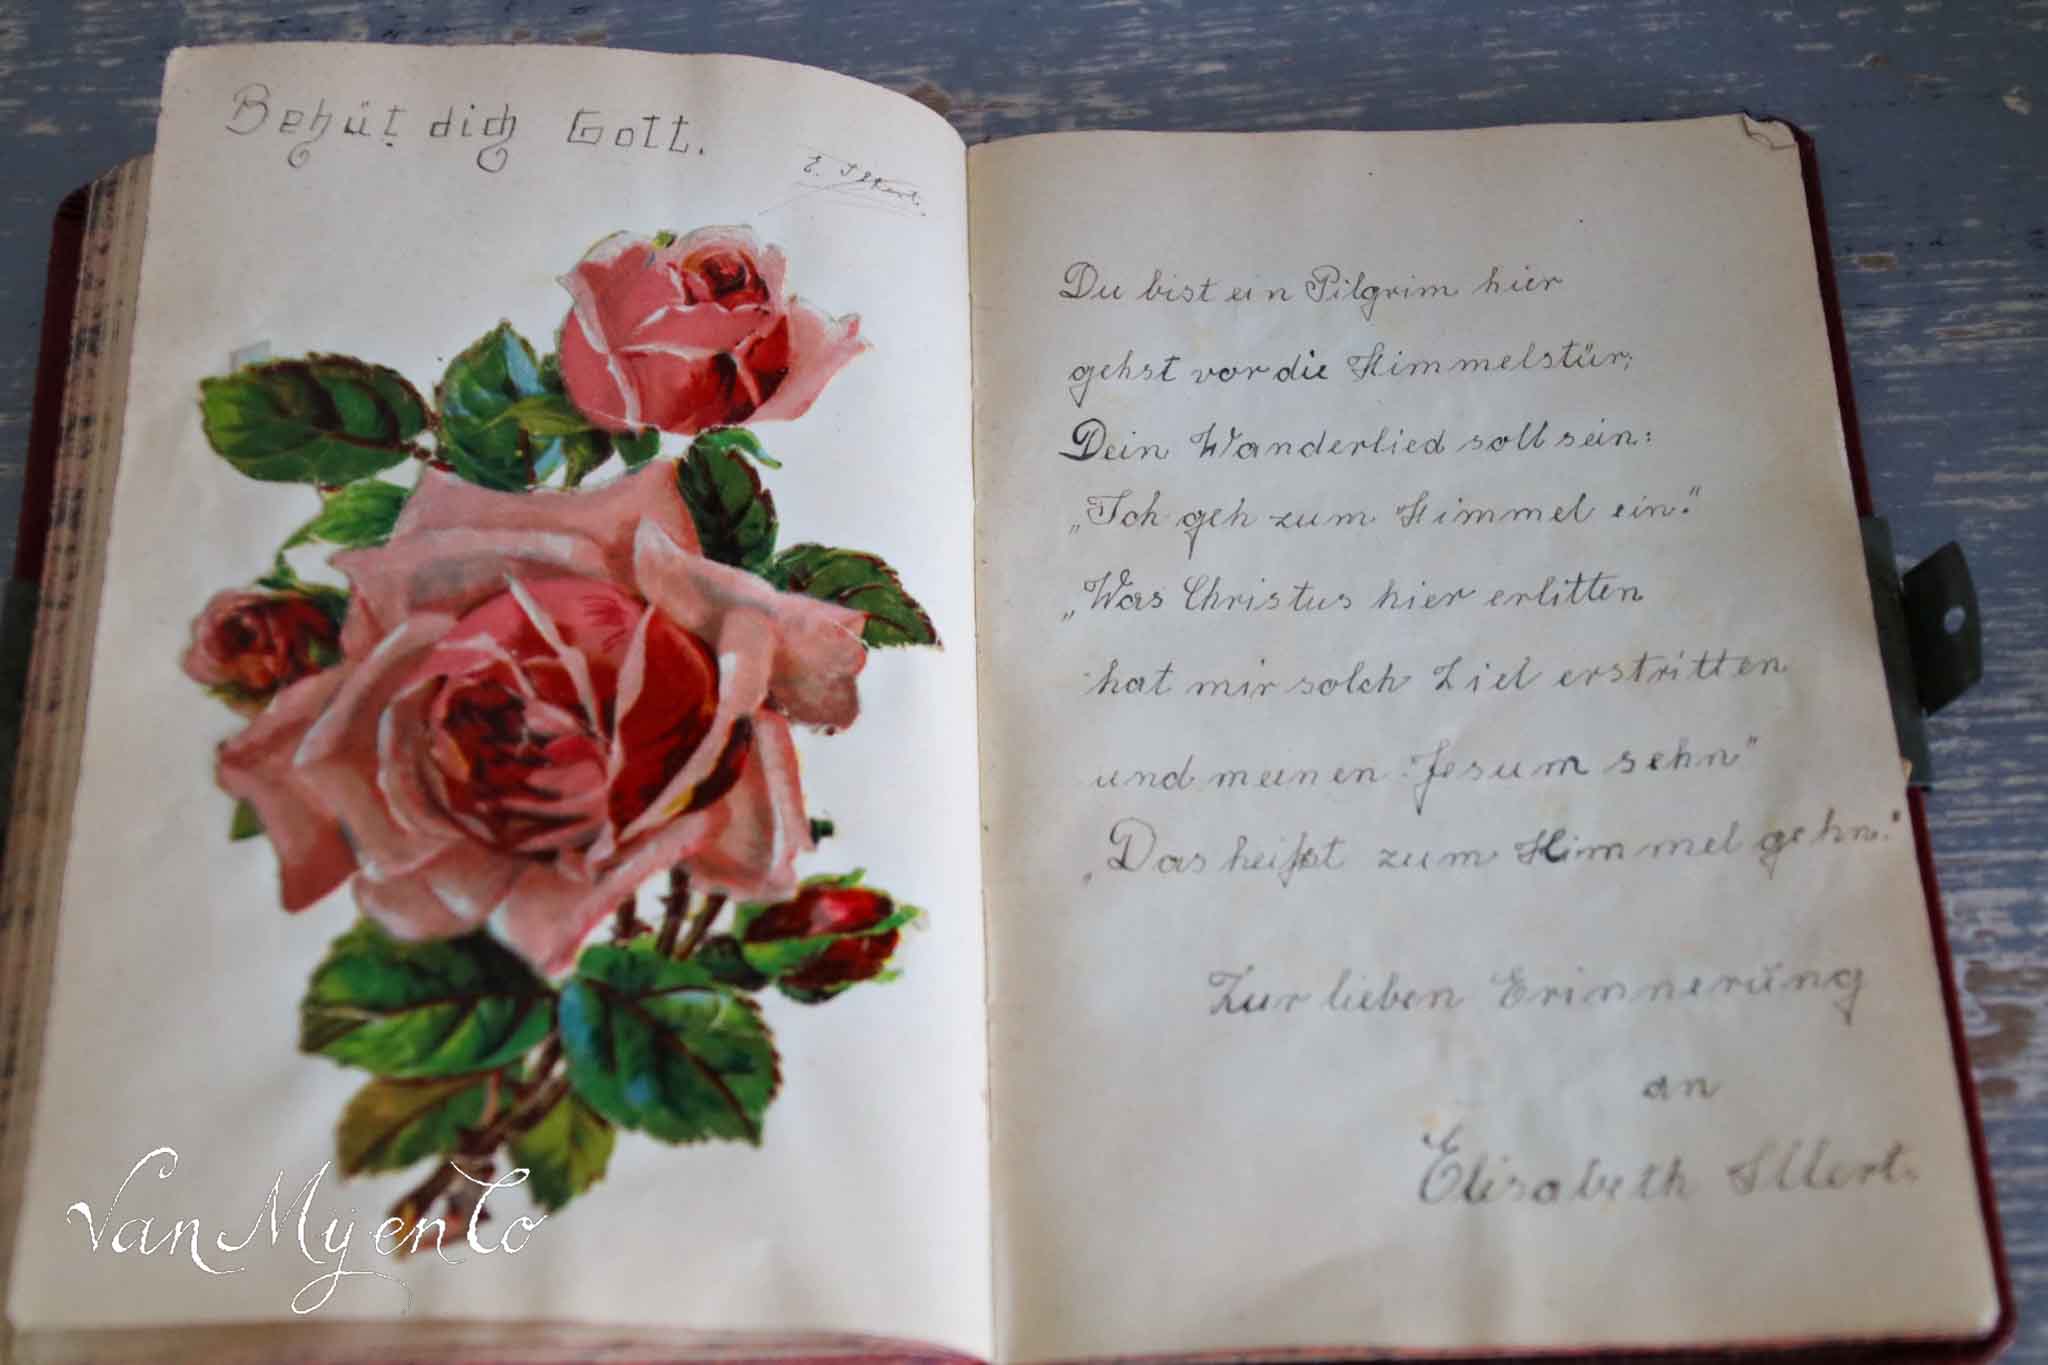 Behüt dich Gott.
E. Illert.
Du bist ein Pilgrim hier
gehst vor die Himmelstür;
Dein Wanderlied soll sein:
„Ich geh zum Himmel ein."
„Was Christus hier erlitten
hat mir solch Ziel erstritten
und meinen Jesum sehn"
„Das heißt zum Himmel gehn."
Zur lieben Erinnerüng
an
Elisabeth Illert.
VanMyenCo